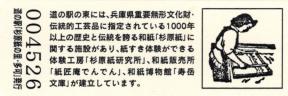 道の駅「杉原紙の里・多可」発行
004526
道の駅の東には、兵庫県重要無形文化財・
伝統的工芸品に指定されている1000年
以上の歴史と伝統を誇る和紙「杉原紙」に
関する施設があり、紙すき体験ができる
体験工房「杉原紙研究所」、和紙販売所
「紙匠庵でんでん」、和紙博物館「寿岳
文庫」が建立しています。